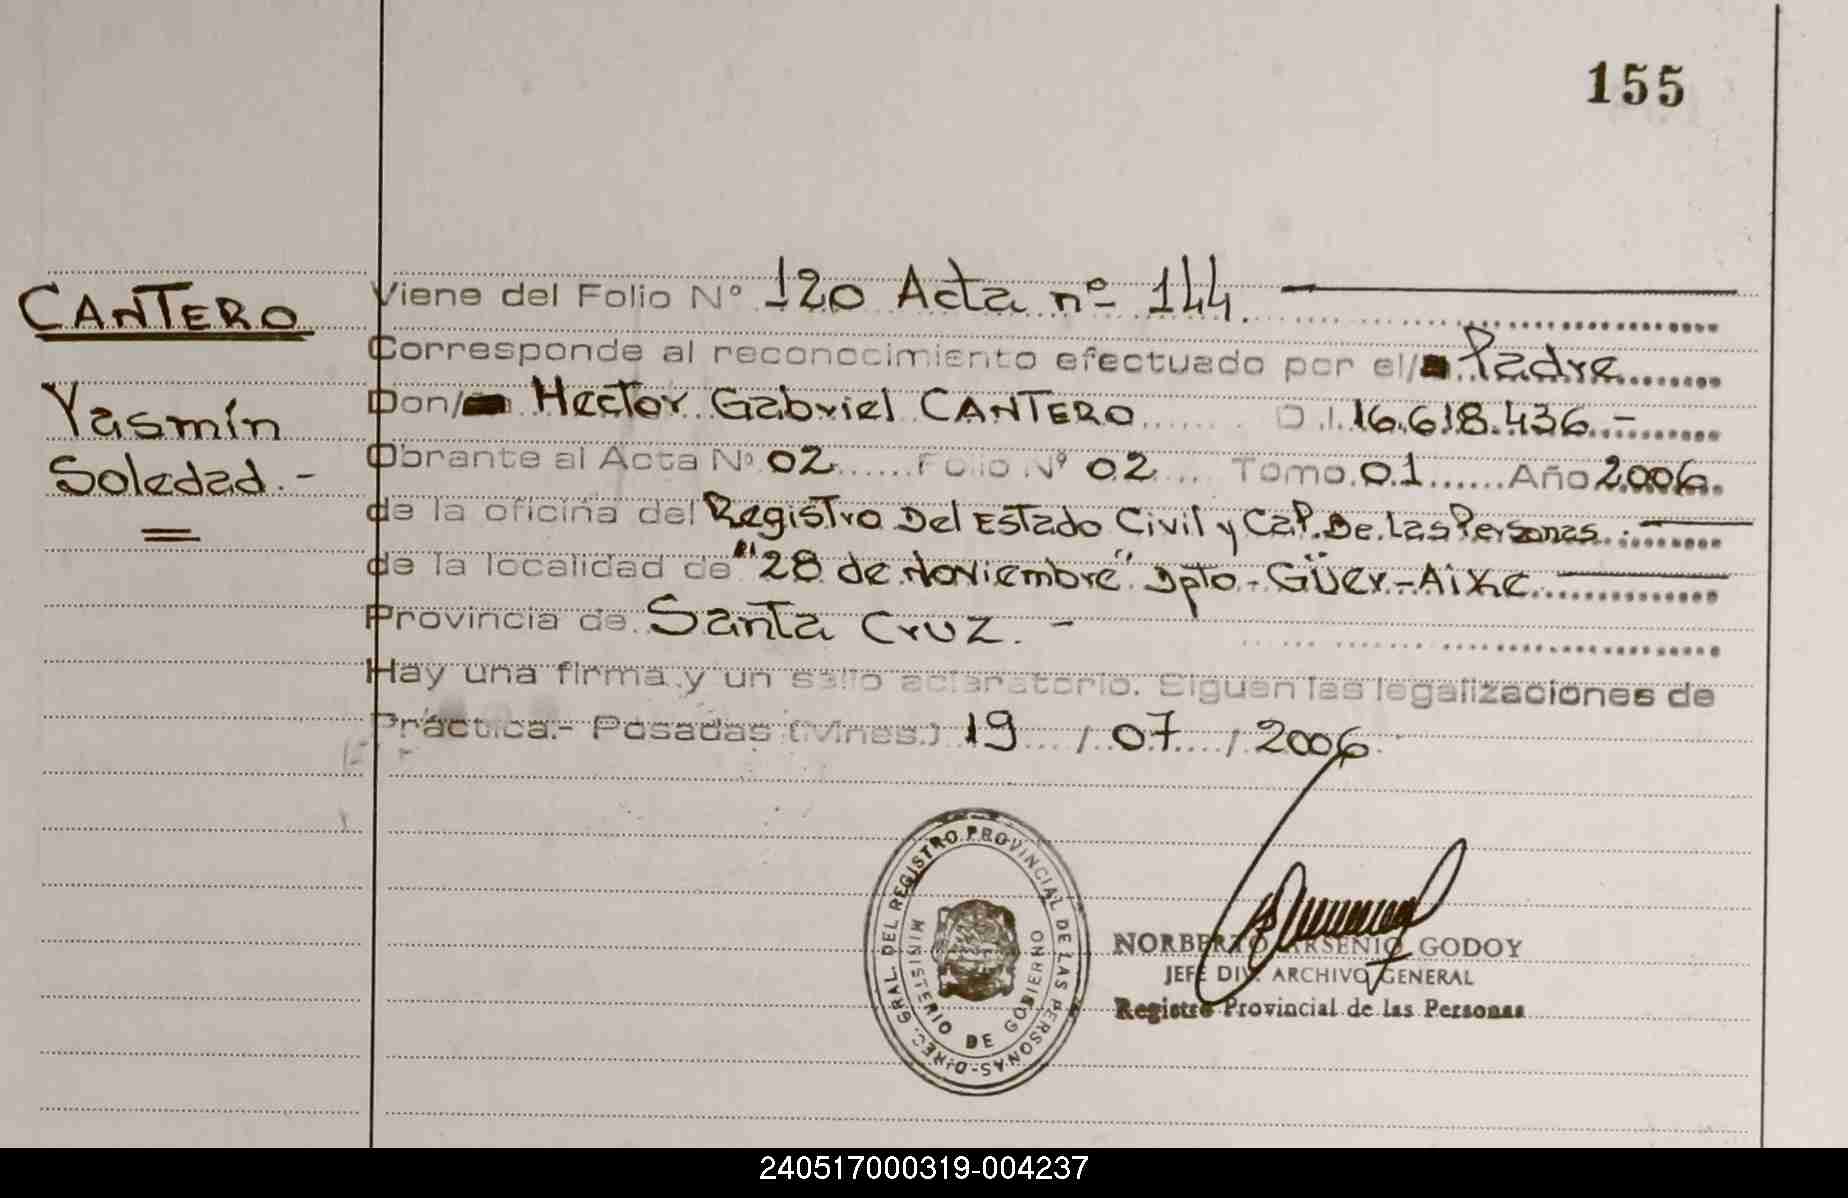 155
CANTERO
Yasmín
Soledad.-
Viene del Folio Nº 120 Acta nº 144.
Corresponde al reconocimiento efectuado por el/ Padre
Don/ Hector Gabriel CANTERO D.I. 16.618.436.-
Obrante al Acta Nº 02 Folio Nº 02 Tomo 01 Año 2006.
de la oficina del Registro Del Estado Civil y Cap. De Las Personas.
de la localidad de "28 de Noviembre" Dpto.- Güer-Aike.
Provincia de Santa Cruz.-
Hay una firma y un sello aclaratorio. Siguen las legalizaciones de
Práctica.- Posadas (Mnes.) 19 / 07 / 2006
DIREC. GRAL. DEL REGISTRO PROVINCIAL DE LAS PERSONAS-
MINISTERIO DE GOBIERNO
NORBERTO ARSENIO GODOY
JEFE DIV. ARCHIVO GENERAL
Registro Provincial de las Personas
240517000319-004237